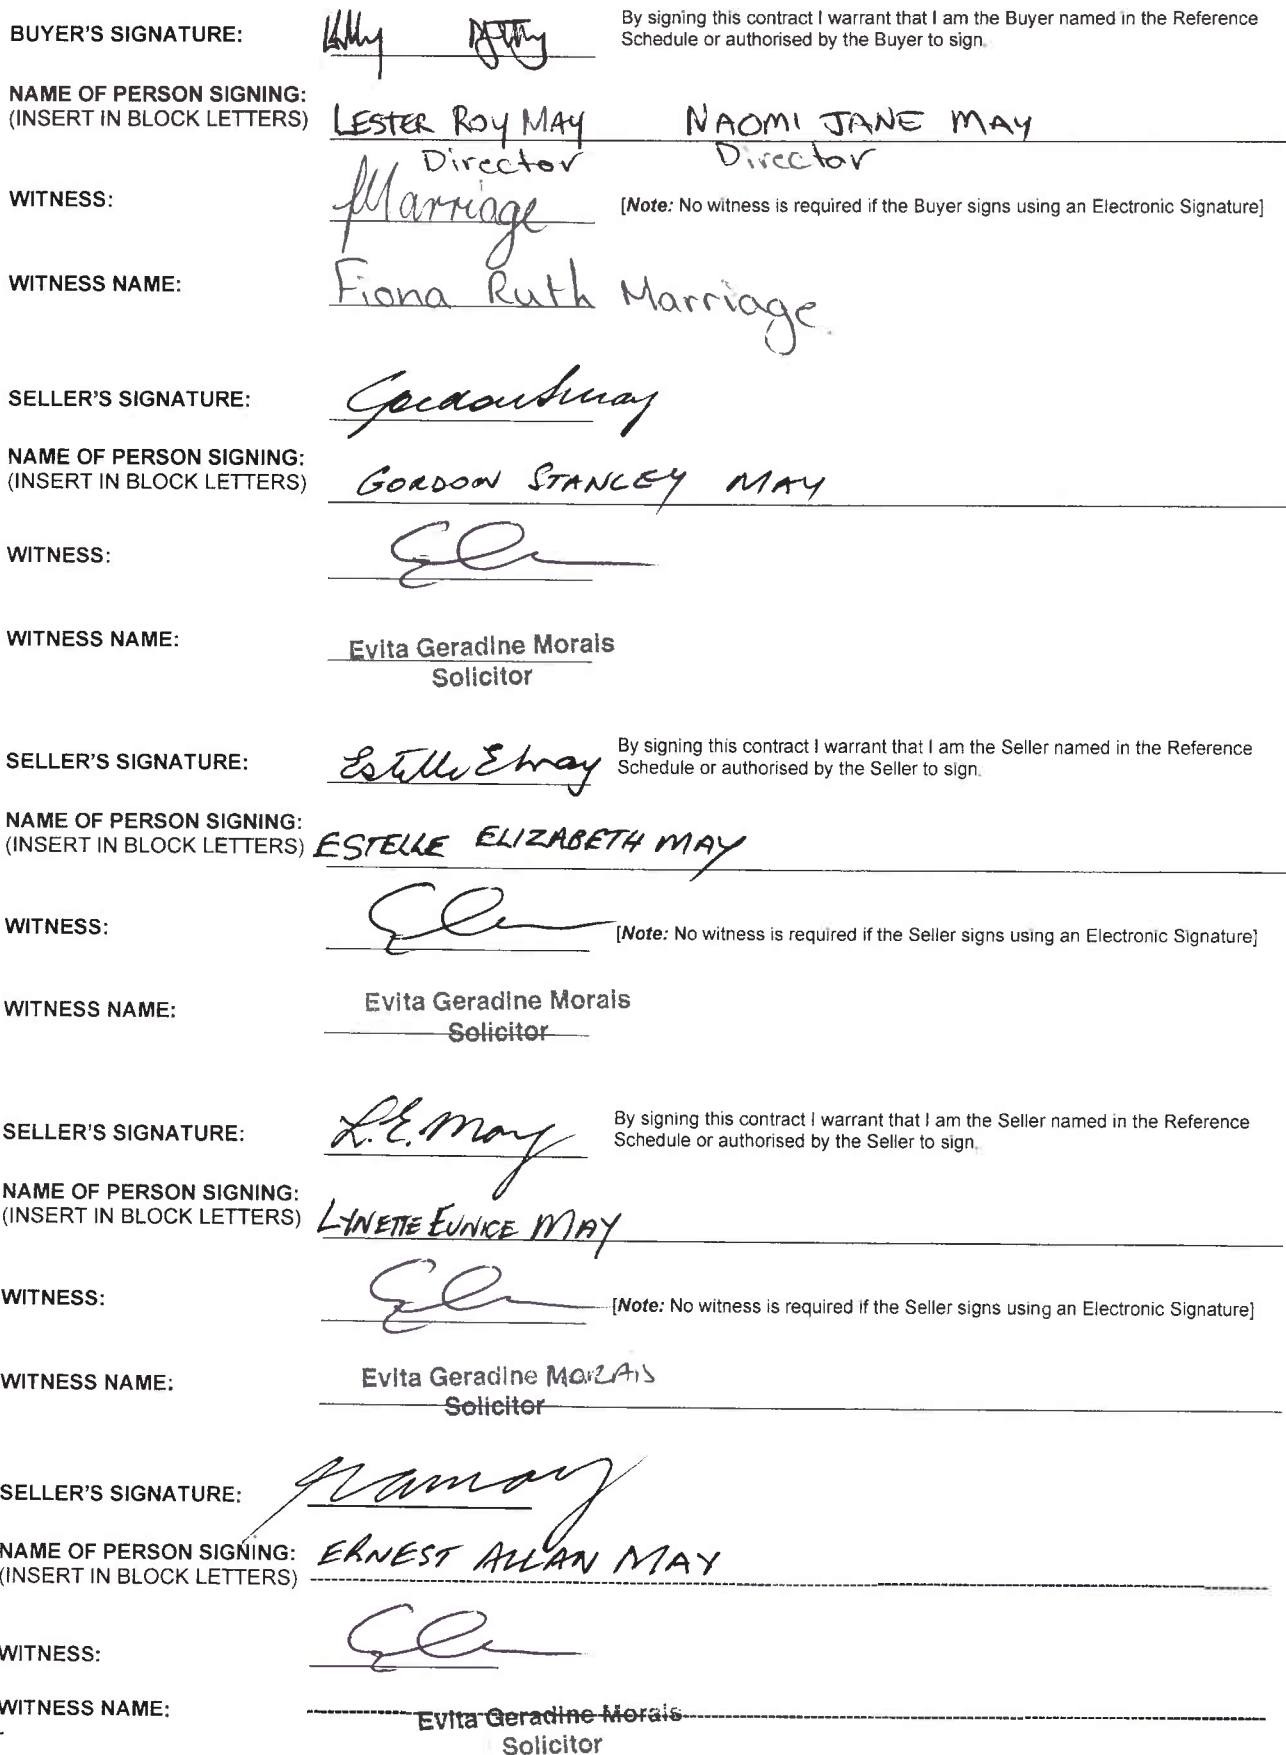 By signing this contract I warrant that I am the Buyer named in the Reference
BUYER'S SIGNATURE:
Schedule or authorised by the Buyer to sign.
NAME OF PERSON SIGNING:
(INSERT IN BLOCK LETTERS) LESTER ROY MAY NAOMI JANE MAY
Director Director
WITNESS: Marriage [Note: No witness is required if the Buyer signs using an Electronic Signature]
WITNESS NAME: Fiona Ruth Marriage
SELLER'S SIGNATURE:
NAME OF PERSON SIGNING:
(INSERT IN BLOCK LETTERS) GORDON STANLEY MAY
WITNESS:
WITNESS NAME: Evita Geradine Morais
Solicitor
By signing this contract I warrant that I am the Seller named in the Reference
SELLER'S SIGNATURE: Estelle E May
Schedule or authorised by the Seller to sign.
NAME OF PERSON SIGNING:
(INSERT IN BLOCK LETTERS) ESTELLE ELIZABETH MAY
WITNESS: [Note: No witness is required if the Seller signs using an Electronic Signature]
WITNESS NAME: Evita Geradine Morais
Solicitor
By signing this contract I warrant that I am the Seller named in the Reference
SELLER'S SIGNATURE: L.E. May
Schedule or authorised by the Seller to sign.
NAME OF PERSON SIGNING:
(INSERT IN BLOCK LETTERS) LYNETTE EUNICE MAY
WITNESS: [Note: No witness is required if the Seller signs using an Electronic Signature]
WITNESS NAME: Evita Geradine MORAIS
Solicitor
SELLER'S SIGNATURE:
NAME OF PERSON SIGNING:
(INSERT IN BLOCK LETTERS) ERNEST ALLAN MAY
WITNESS:
WITNESS NAME: Evita Geradine Morais
Solicitor